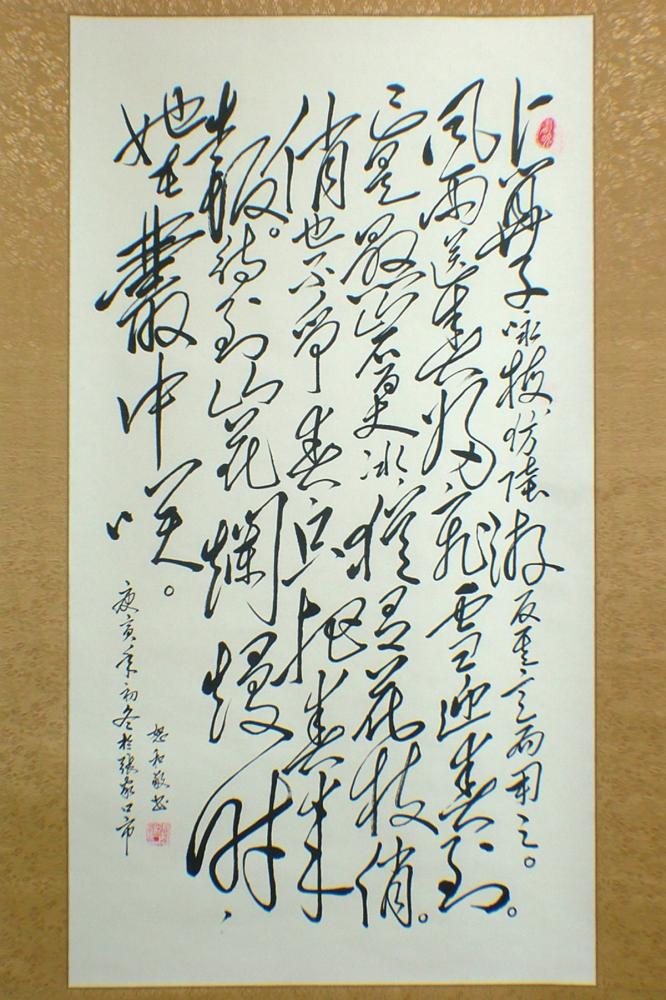 卜算子咏梅仿陸游反其意而用之。
风雨送春归飞雪迎春到。
已是悬岩百丈冰犹有花枝俏。
俏也不争春只把春来
報。待到山花爛熳时，
她在叢中笑。
庚寅年初冬於張家口市
和敬书